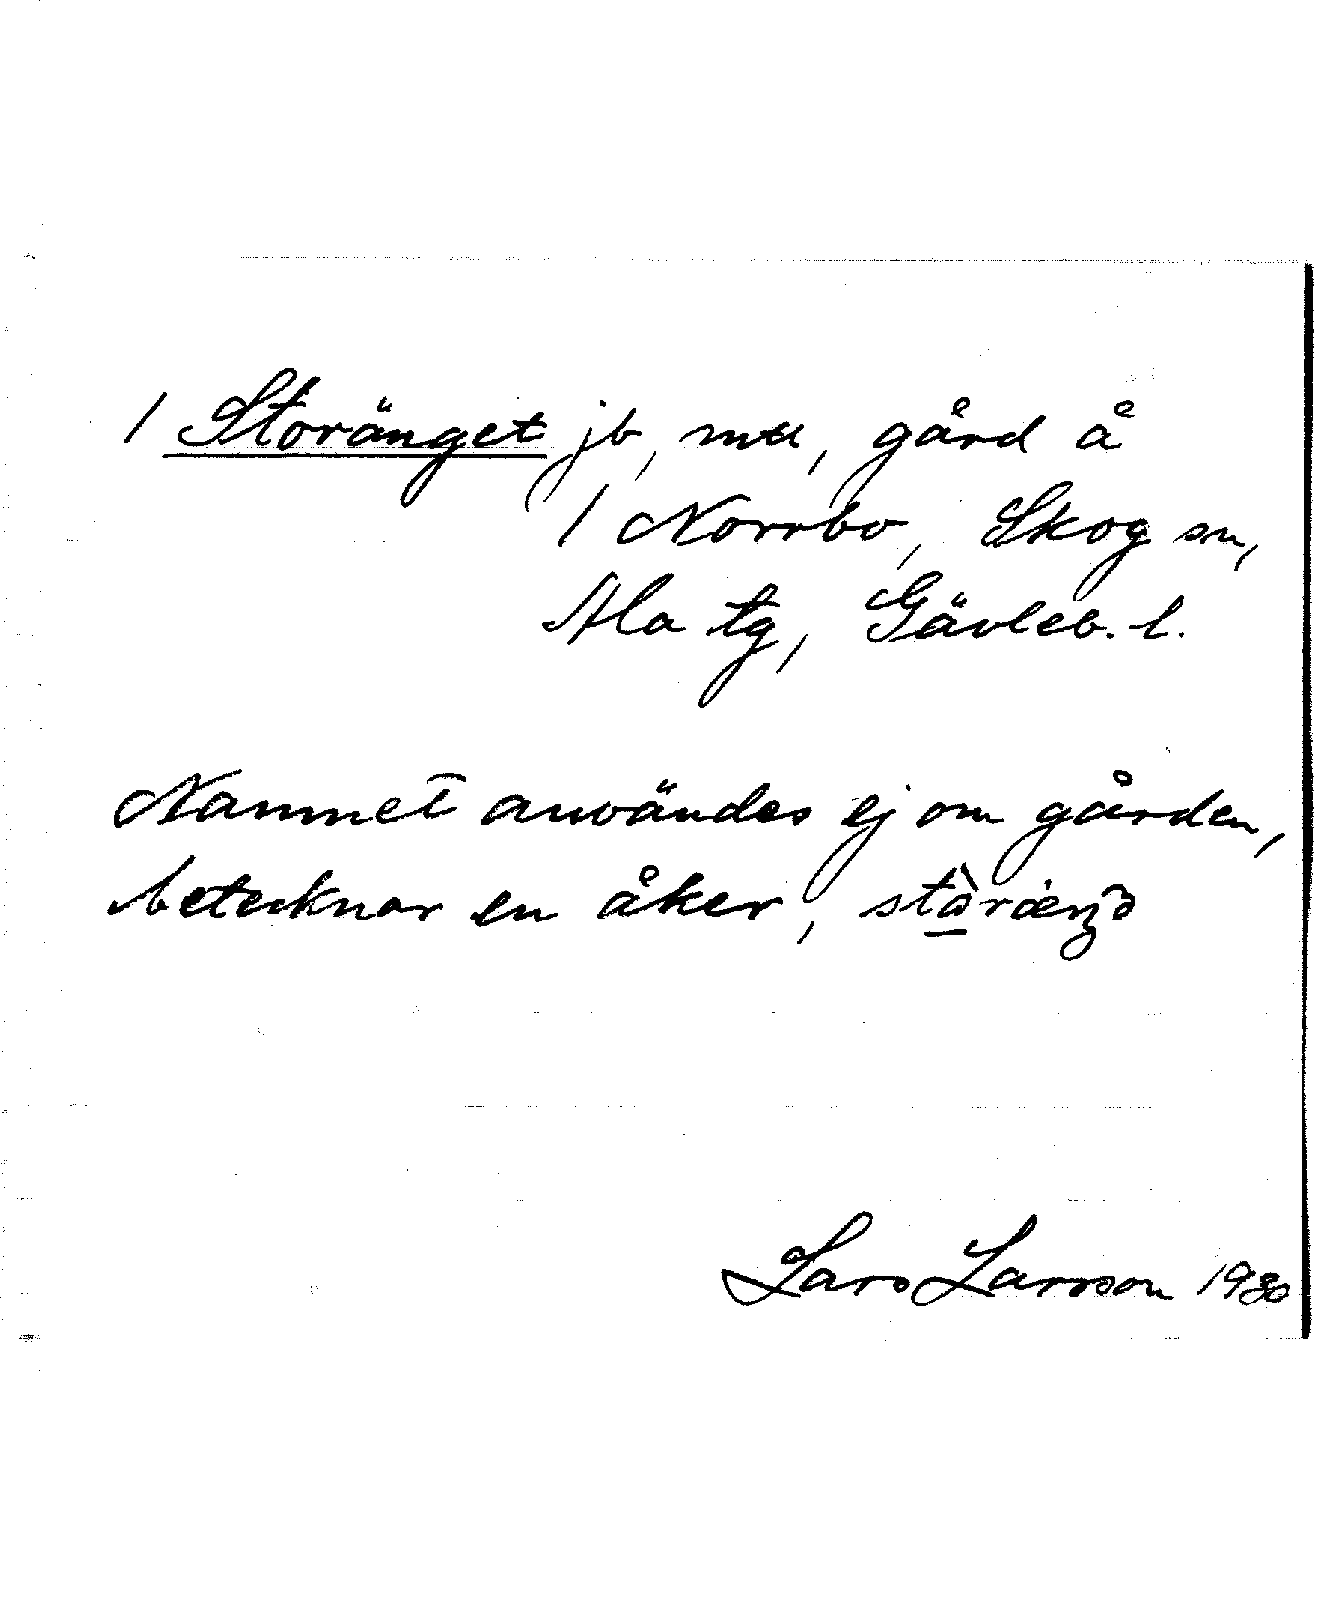 / Storänget jb, mtl, gård å
/ Norrbo, Skog sn,
Ala tg, Gävleb. l.
Namnet användes ej om gården,
betecknar en åker,
Lars Larsson 1980